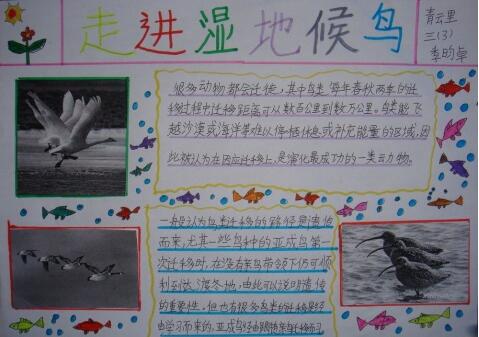 走进湿地候鸟
青云里
三(3)
季昀卓
很多动物都会迁徙，其中鸟类每年春秋两季的迁
移过程中迁移距离可从数百公里到数万公里。鸟类能飞
越沙漠或海洋等难以停栖休息或补充能量的区域，因
此被认为在因应迁移上，是演化最成功的一类动物。
一般认为鸟类迁移的路径是遗传
而来，尤其一些鸟种的亚成鸟第一
次迁移时，在没有亲鸟带领下仍可顺
利到达渡冬地，由此可以说明遗传
的重要性。但也有很多鸟类的迁移是经
由学习而来的，亚成鸟经由跟随亲鸟迁移而习